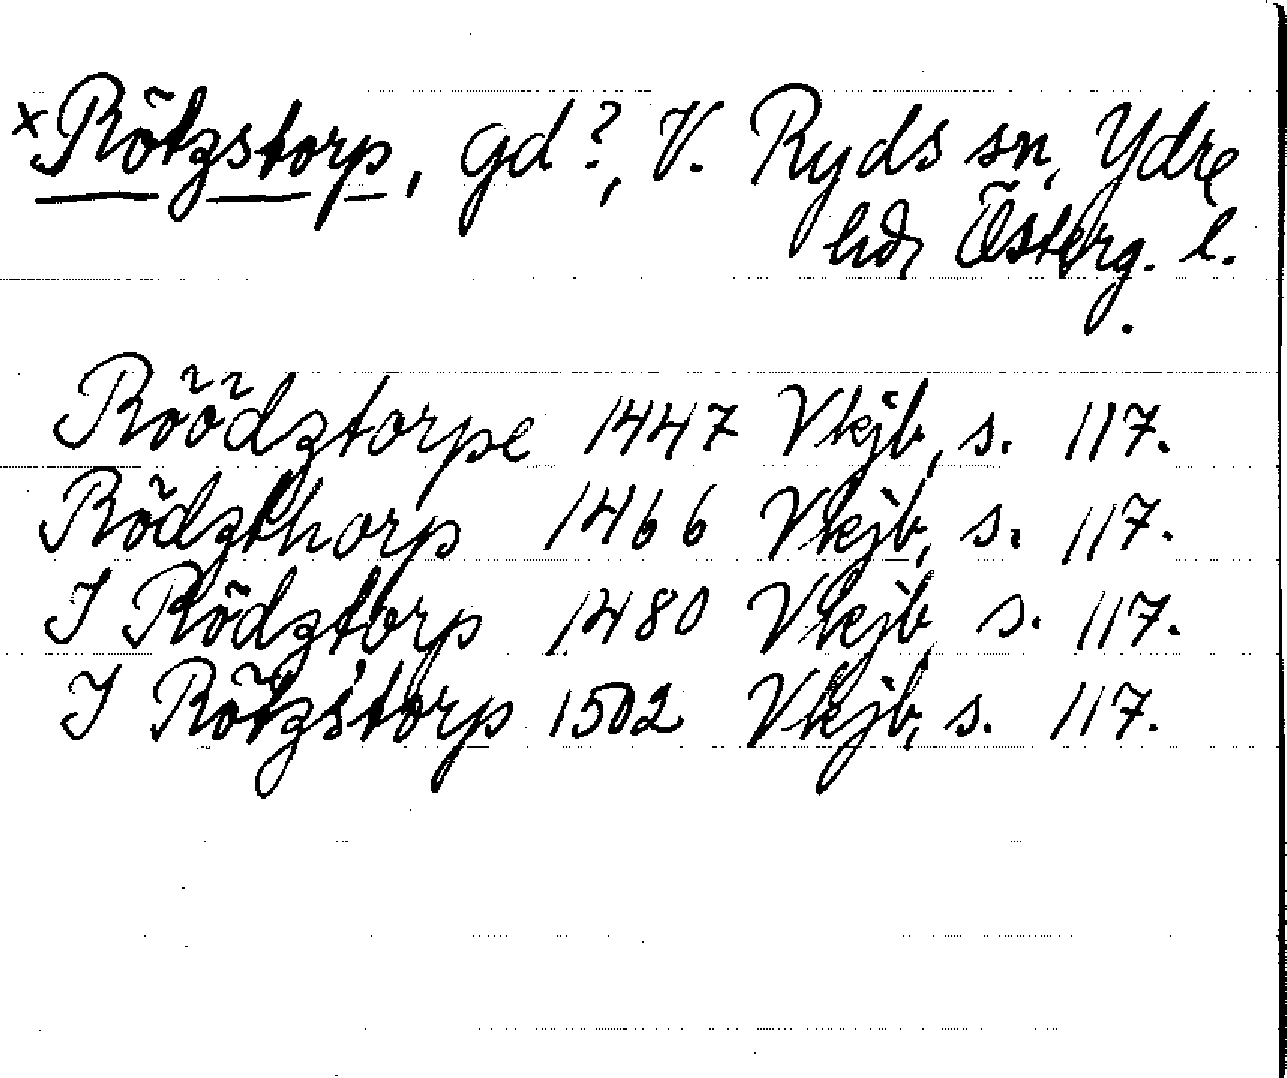 ×Rötzstorp, gd?, V. Ryds sn, Ydre
hd, Österg. l.
Röödztorpe 1447 Vkjb, s. 117.
Rödzthorp 1466 Vkjb, s. 117.
J Rödztorp 1480 Vkjb, s. 117.
J Rötzstorp 1502 Vkjb, s. 117.